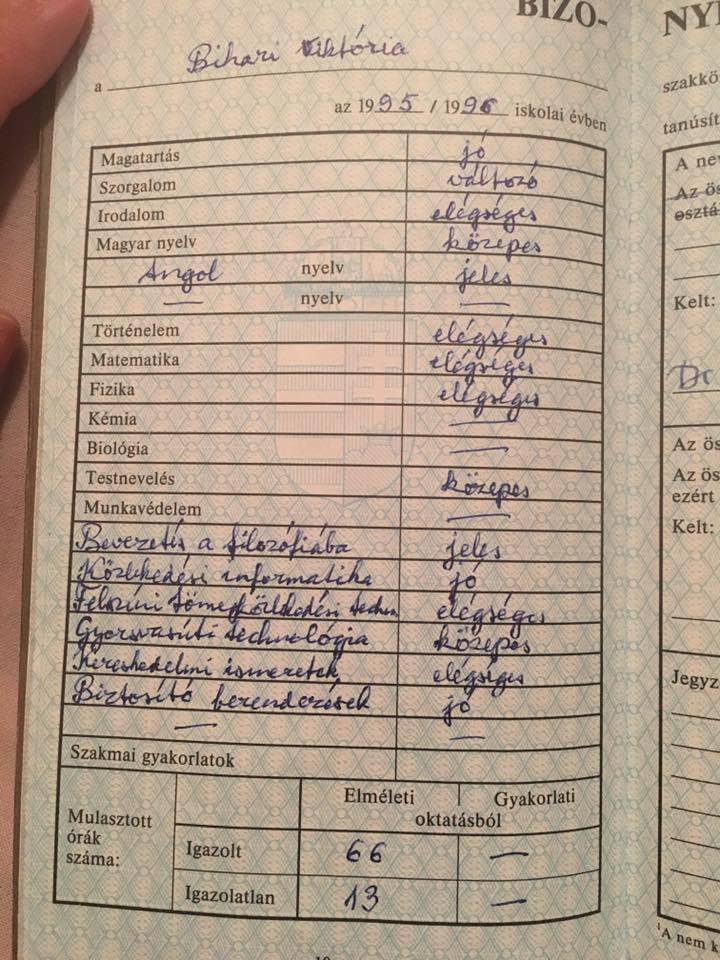 BIZO-
a Bihari Viktória
az 1995 / 1996 iskolai évben
Magatartás jó
Szorgalom változó
Irodalom elégséges
Magyar nyelv közepes
Angol nyelv jeles
— nyelv —
Történelem elégséges
Matematika elégséges
Fizika elégséges
Kémia —
Biológia —
Testnevelés közepes
Munkavédelem —
Bevezetés a filozófiába jeles
Közlekedési informatika jó
Felszíni tömegközlekedési techn elégséges
Gyorsvasúti technológia közepes
Kereskedelmi ismeretek elégséges
Biztosító berendezések jó
— —
Szakmai gyakorlatok
Elméleti Gyakorlati
oktatásból
Mulasztott
órák
száma:
Igazolt 66 —
Igazolatlan 13 —
NY
szakkö
tanúsít
A ne
Az ös
osztá
Kelt:
Dr
Az ös
Az ös
ezért
Kelt:
Jegyz
¹A nem k